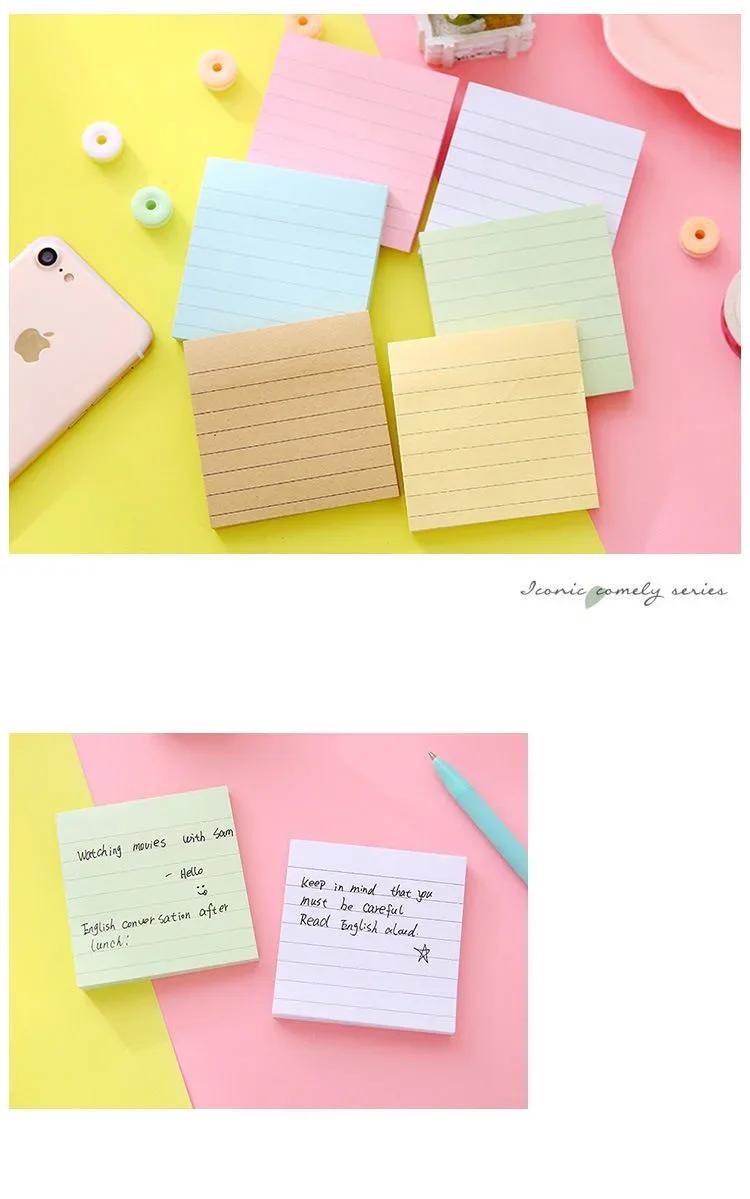 Iconic comely series
Watching movies with Sam
- Hello
English conversation after
lunch!
Keep in mind that you
must be careful
Read English aloud.